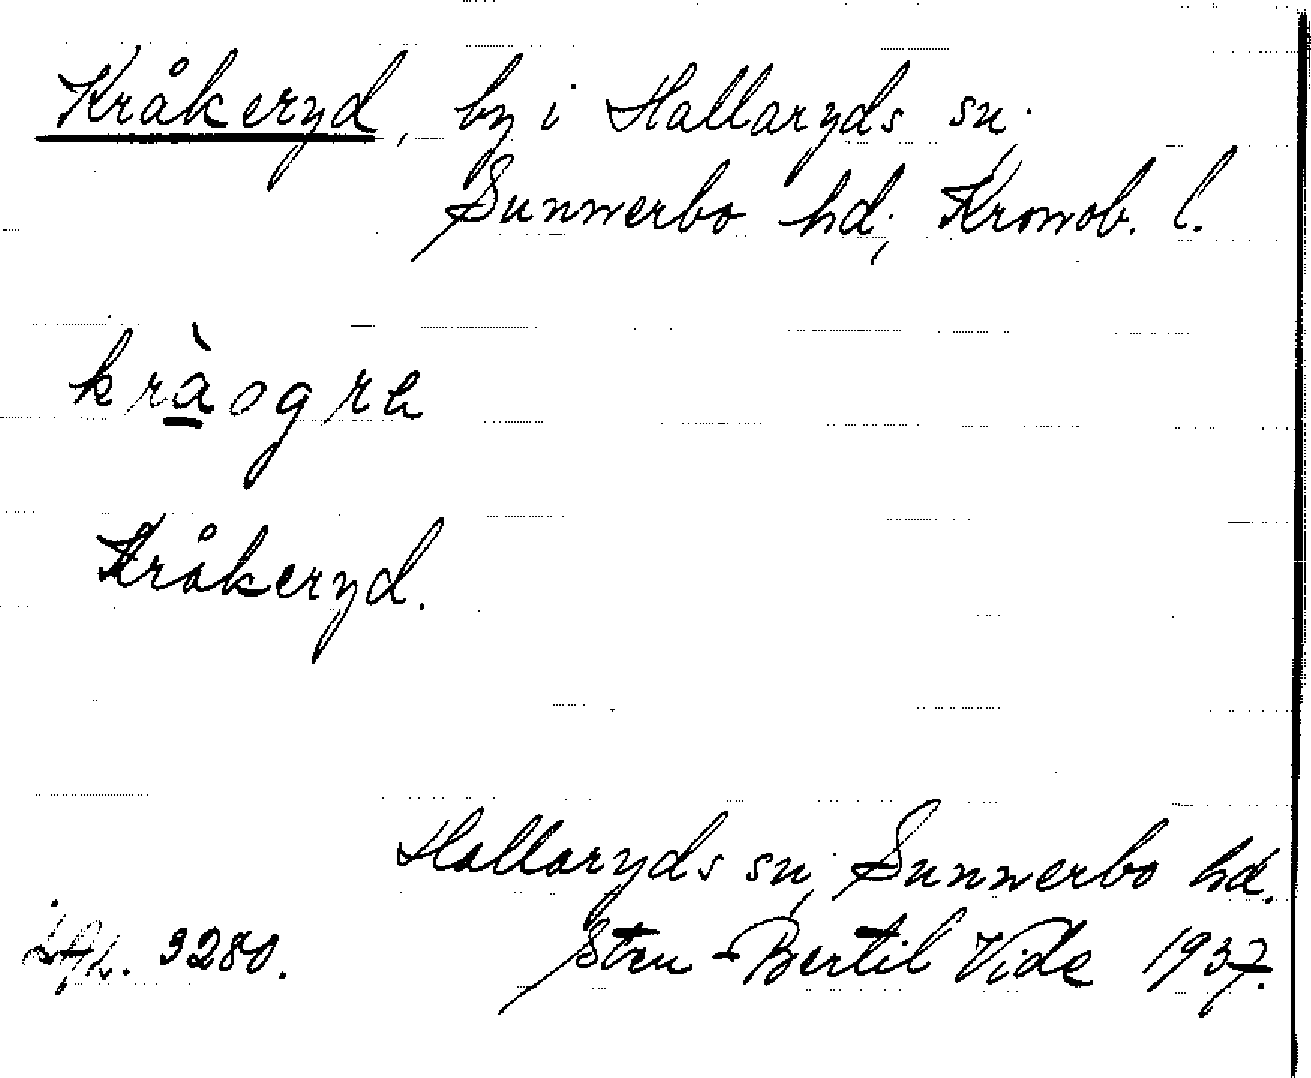 Kråkeryd, by i Hallaryds sn;
Sunnerbo hd; Kronob. l.
kràogra
Kråkeryd.
Hallaryds sn; Sunnerbo hd.
3280. Sten-Bertil Vide 1937.